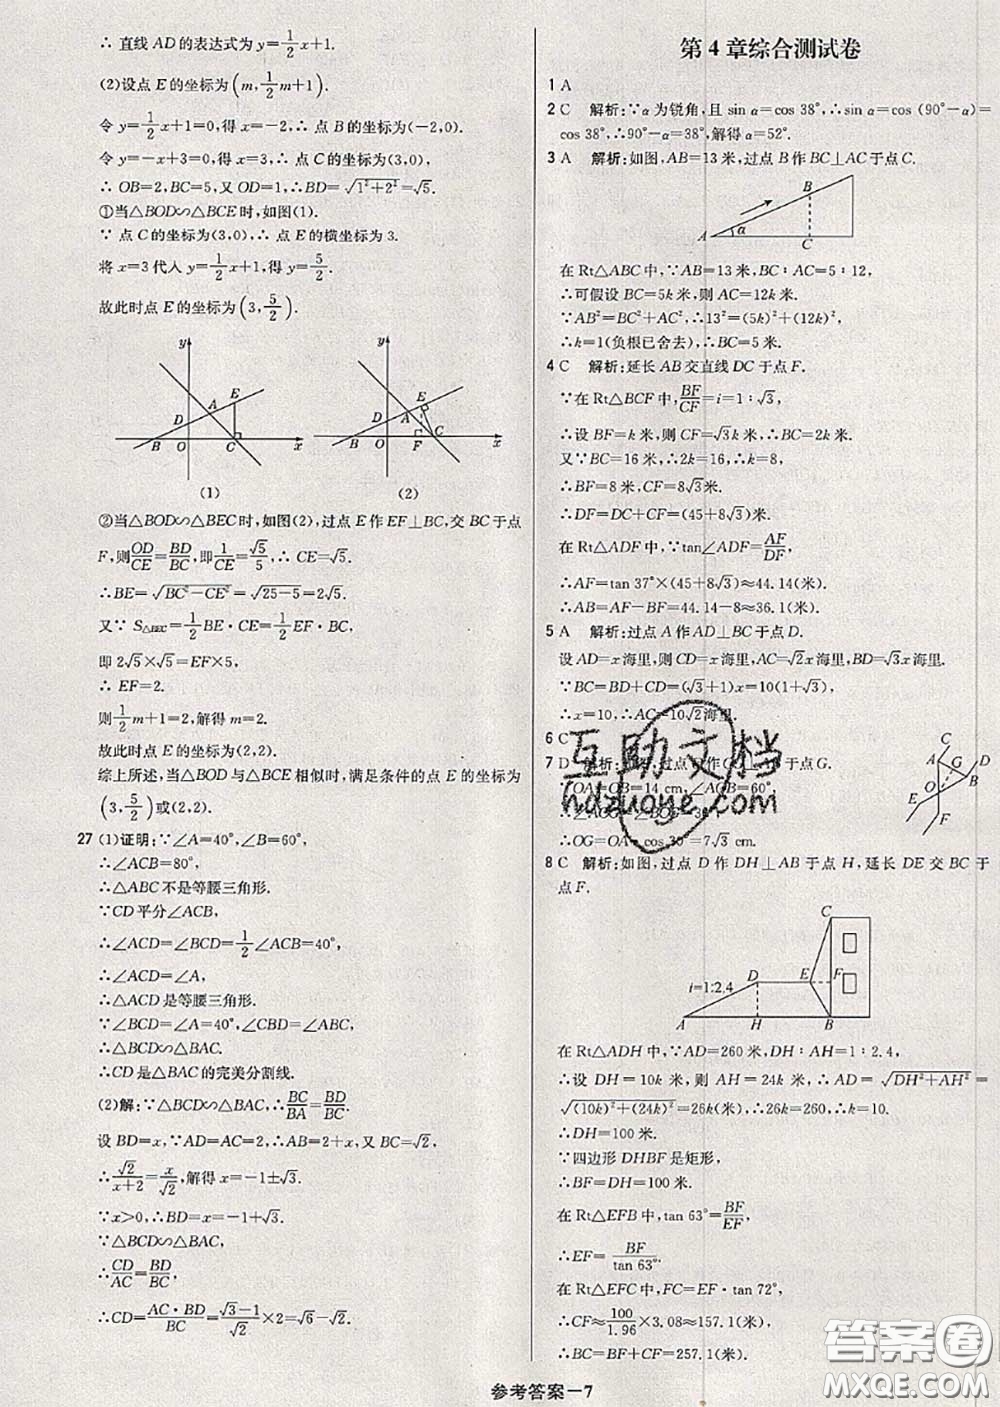 ∴ 直线 AD 的表达式为 y=1/2x+1.
(2)设点 E 的坐标为(m,1/2m+1).
令 y=1/2x+1=0,得 x=-2,∴ 点 B 的坐标为(-2,0).
令 y=-x+3=0,得 x=3,∴ 点 C 的坐标为(3,0),
∴ OB=2,BC=5,又 OD=1,∴BD=√(1²+2²)=√5.
①当△BOD∽△BCE 时,如图(1).
∵ 点 C 的坐标为(3,0),∴ 点 E 的横坐标为 3.
将 x=3 代入 y=1/2x+1,得 y=5/2.
故此时点 E 的坐标为(3,5/2).
y
E
A
D
B O C x
(1)
y
E
D A
B O F C x
(2)
②当△BOD∽△BEC 时,如图(2),过点 E 作 EF⊥BC,交 BC 于点
F,则OD/CE=BD/BC,即1/CE=√5/5,∴ CE=√5.
∴BE=√(BC²-CE²)=√(25-5)=2√5.
又∵ S△BEC=1/2BE·CE=1/2EF·BC,
即 2√5×√5=EF×5,
∴ EF=2.
则1/2m+1=2,解得 m=2.
故此时点 E 的坐标为(2,2).
综上所述,当△BOD 与△BCE 相似时,满足条件的点 E 的坐标为
(3,5/2)或(2,2).
27 (1)证明:∵∠A=40°,∠B=60°,
∴∠ACB=80°,
∴△ABC 不是等腰三角形.
∵CD 平分∠ACB,
∴∠ACD=∠BCD=1/2∠ACB=40°,
∴∠ACD=∠A,
∴△ACD 是等腰三角形.
∵∠BCD=∠A=40°,∠CBD=∠ABC,
∴△BCD∽△BAC.
∴CD 是△BAC 的完美分割线.
(2)解:∵△BCD∽△BAC,∴BC/BA=BD/BC.
设 BD=x,∵AD=AC=2,∴AB=2+x,又 BC=√2,
∴√2/(x+2)=x/√2,解得 x=-1±√3.
∵x>0,∴BD=x=-1+√3.
∵△BCD∽△BAC,
∴CD/AC=BD/BC,
∴CD=AC·BD/BC=(√3-1)/√2×2=√6-√2.
第 4 章综合测试卷
1 A
2 C 解析:∵α 为锐角,且 sin α=cos 38°,∴sin α=cos (90°-α)=
cos 38°,∴90°-α=38°,解得 α=52°.
3 A 解析:如图,AB=13 米,过点 B 作 BC⊥AC 于点 C.
B
A α C
在 Rt△ABC 中,∵AB=13 米,BC:AC=5:12,
∴可假设 BC=5k 米,则 AC=12k 米.
∵AB²=BC²+AC²,∴13²=(5k)²+(12k)²,
∴k=1(负根已舍去),∴BC=5 米.
4 C 解析:延长 AB 交直线 DC 于点 F.
∵在 Rt△BCF 中,BF/CF=i=1:√3,
∴设 BF=k 米,则 CF=√3k 米,∴BC=2k 米.
又∵BC=16 米,∴2k=16,∴k=8,
∴BF=8 米,CF=8√3米.
∴DF=DC+CF=(45+8√3)米.
在 Rt△ADF 中,∵tan∠ADF=AF/DF,
∴AF=tan 37°×(45+8√3)≈44.14(米),
∴AB=AF-BF=44.14-8≈36.1(米).
5 A 解析:过点 A 作 AD⊥BC 于点 D.
设 AD=x 海里,则 CD=x 海里,AC=√2x海里,BD=√3x 海里.
∵BC=BD+CD=(√3+1)x=10(1+√3),
∴x=10,∴AC=10√2海里.
6 C
7 D 解析:如图,过点 O 作 于点 G.
∵OA=OB=14 cm,∠AOB=60°,
∴OG=OA·cos 30°=7√3 cm.
C
A G D
O B
E
F
8 C 解析:如图,过点 D 作 DH⊥AB 于点 H,延长 DE 交 BC 于
点 F.
C
D E F
i=1:2.4
A H B
在 Rt△ADH 中,∵AD=260 米,DH:AH=1:2.4,
∴设 DH=10k 米,则 AH=24k 米,∴AD=√(DH²+AH²)=
√((10k)²+(24k)²)=26k(米),∴26k=260,∴k=10.
∴DH=100 米.
∵四边形 DHBF 是矩形,
∴BF=DH=100 米.
在 Rt△EFB 中,tan 63°=BF/EF,
∴EF=BF/tan 63°.
在 Rt△EFC 中,FC=EF·tan 72°,
∴CF≈100/1.96×3.08≈157.1(米).
∴BC=BF+CF=257.1(米).
参考答案—7
互助文档
hdzuoye.com
答案圈
MXQE.COM